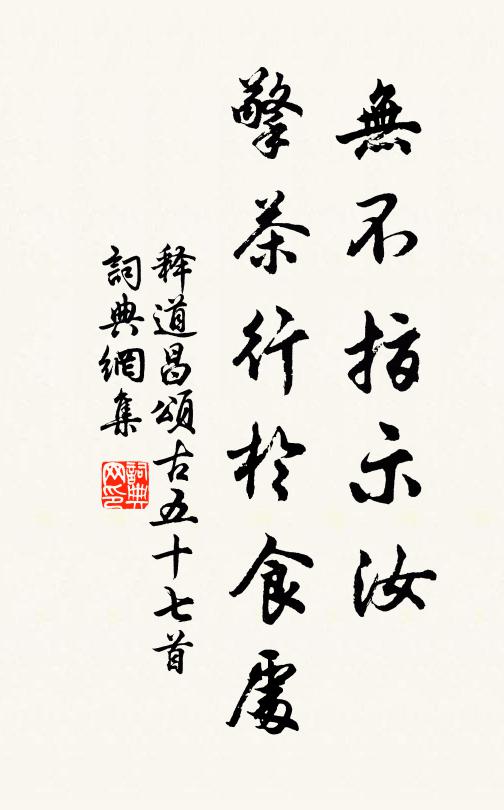 無不指示汝
擎茶行於食處
释道昌頌古五十七首
詞典網集
詞典
网印